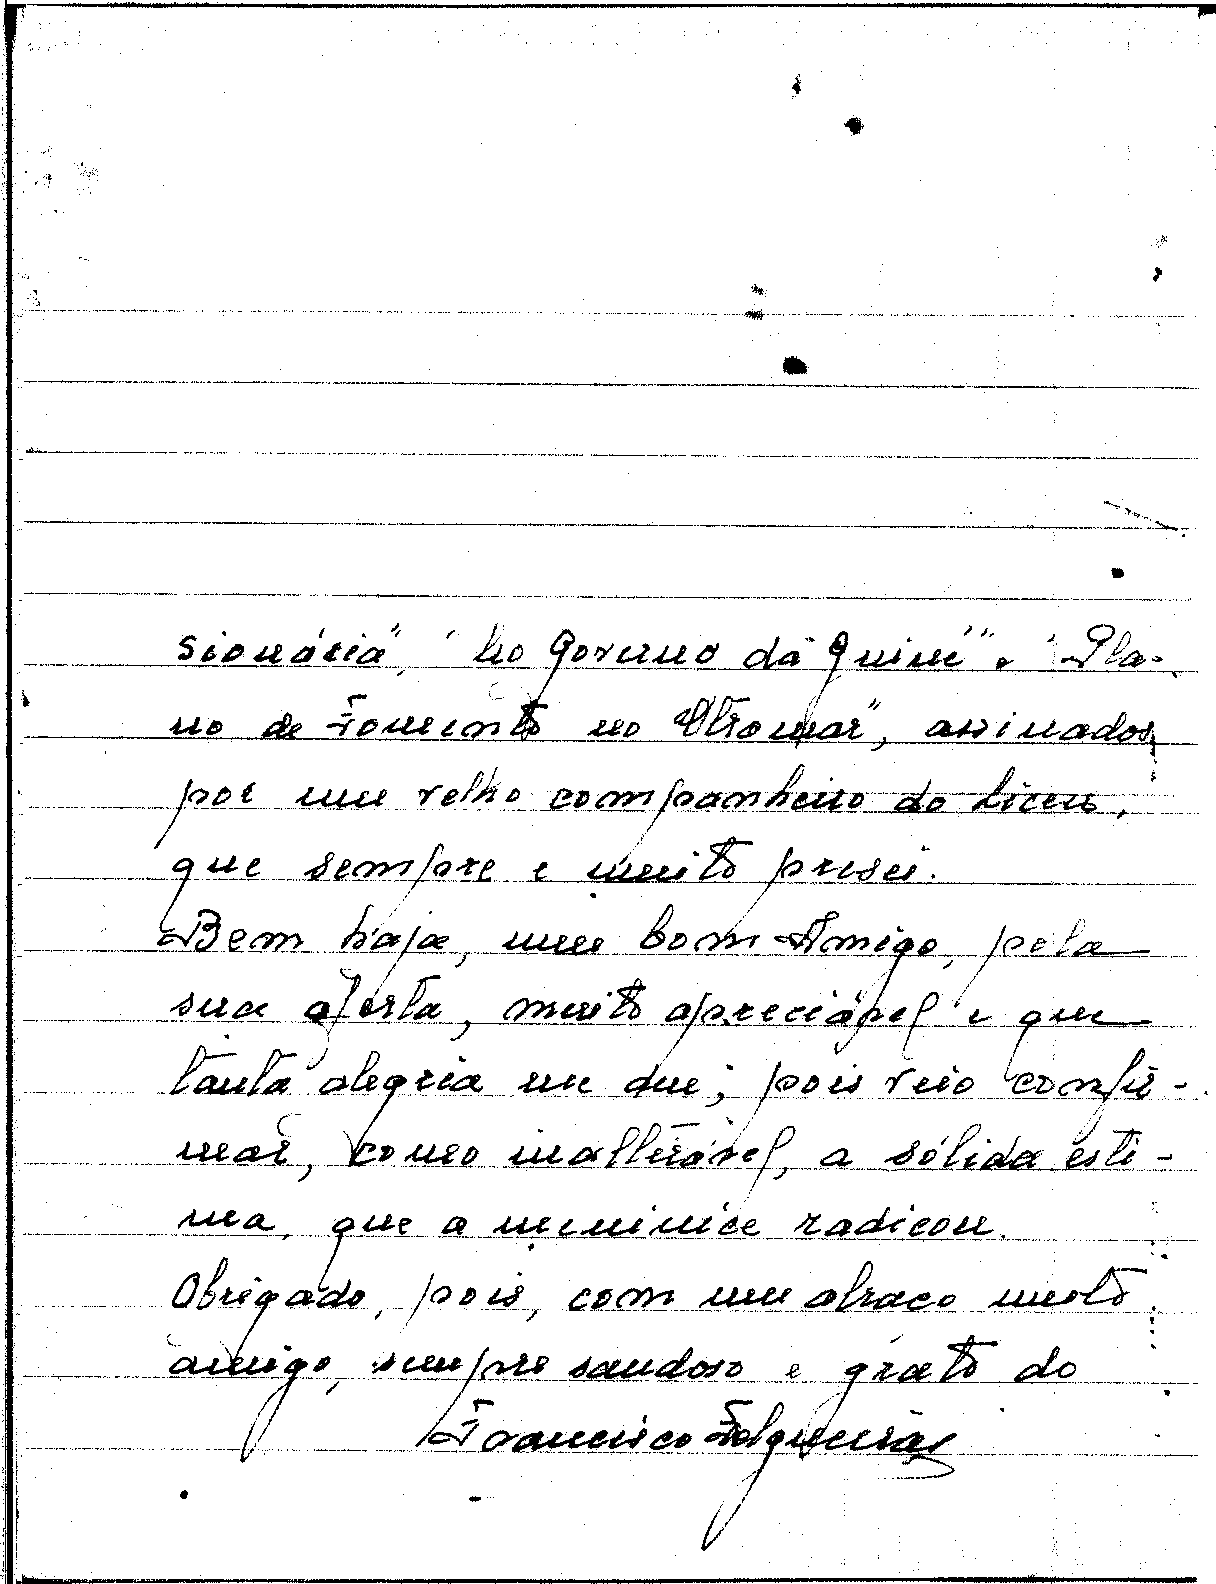 sionária", "No Governo da Guiné" e "Pla-
no de Fomento no Ultramar", assinados
por um velho companheiro do Liceu,
que sempre e muito presei.
Bem haja, meu bom Amigo, pela
sua oferta, muito apreciável e que
tanta alegria me deu; pois veio confir-
mar, como inalterável, a sólida esti-
ma, que a meninice radicou.
Obrigado, pois, com um abraço muito
amigo, sempre saudoso e grato do
Francisco Felgueiras